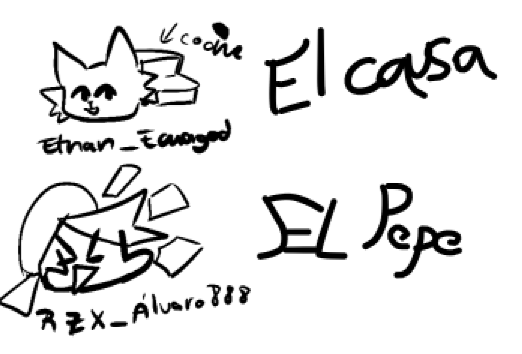 coche
El casa
Ethan_Ecuagod
EL Pepe
RZX_Álvaro888